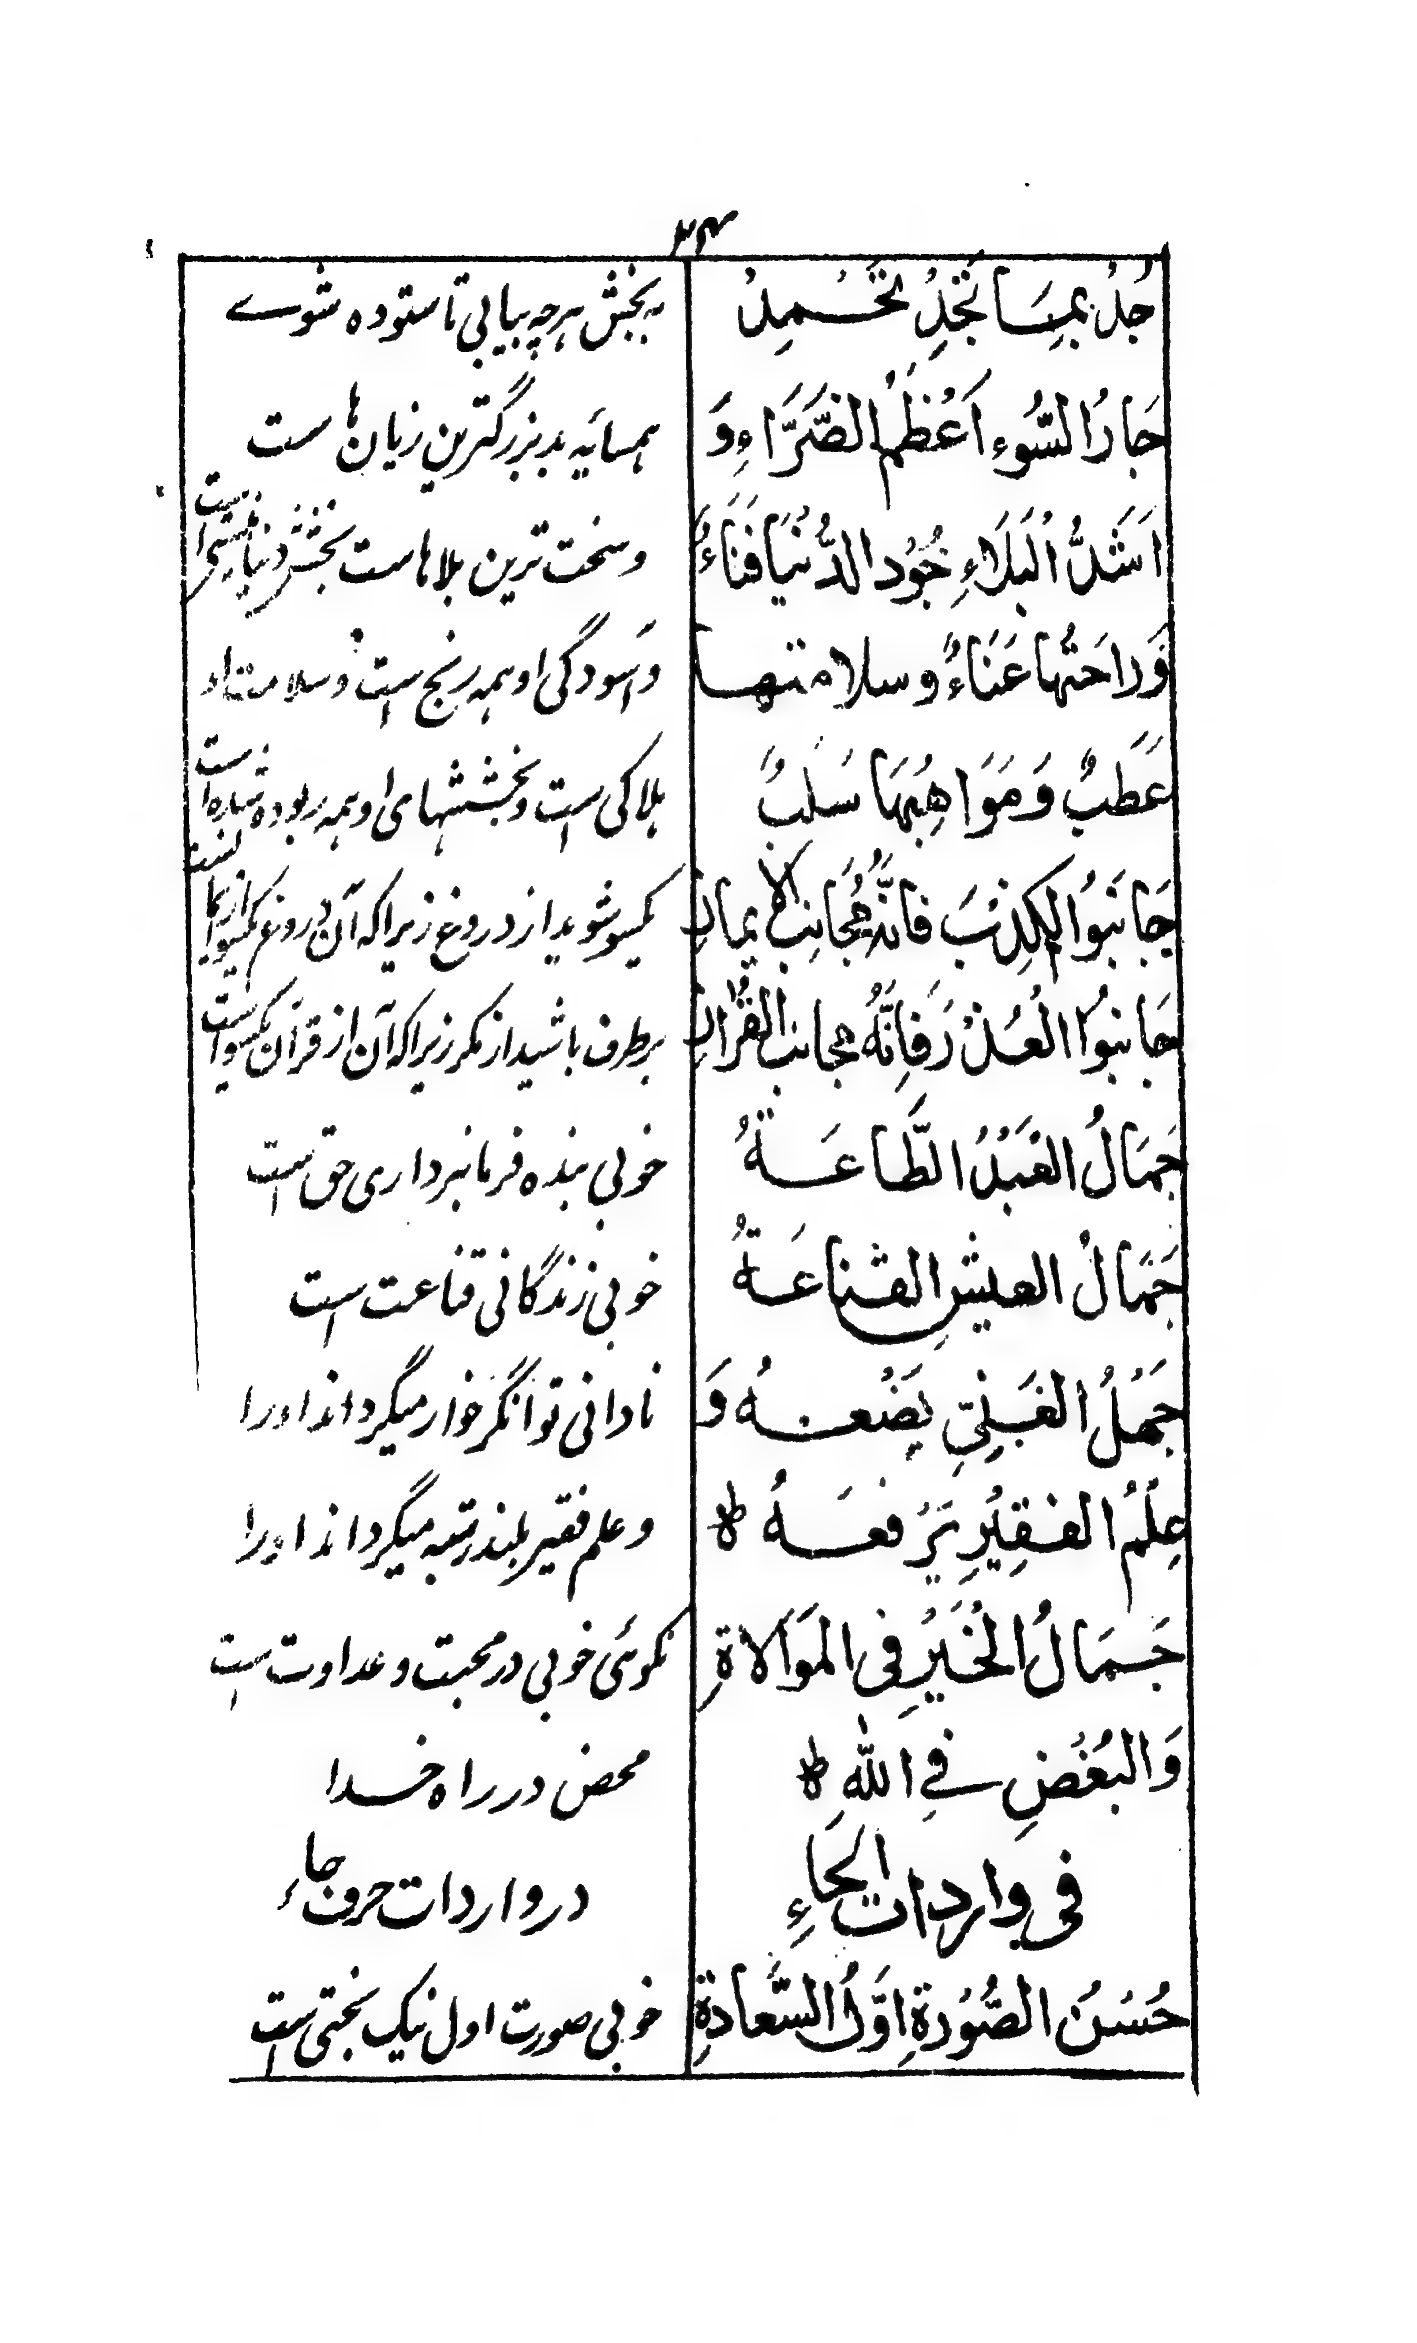 ۳۴
جُدْ بِمَا تَجِدْ تُحْمَدْ
به بخش هرچه بیابی تا ستوده شوے
جَارُ السُّوءِ اَعْظَمُ الضَّرَّاءِ وَ
همسائیه بد بزرگترین زیان ها ست
اَشَدُّ الْبَلَاءِ جُوْدُ الدُّنْيَا فَنَاءٌ
وسخت ترین بلاها ست بخشش دنیا نیستی است
وَرَاحَتُهَا عَنَاءٌ وسلامتها
وآسودگی او همه رنج است وسلامت او
عَطَبٌ وَمَوَاهِبُهَا سَلَبٌ
هلاکی است وبخششهای او همه ربوده شده است
جَانِبُوا الْكِذْبَ فَانَّهُ مُجَانِبُ الايمانِ
یکسو شوید از دروغ زیراکه آن دروغ یکسو از ایمانست
جَانِبُوا الْغَدْرَ فَاِنَّهُ مجانبُ القُرْانِ
برطرف باشید از مکر زیراکه آن از قرآن یکسو است
جَمَالُ الْعَبْدُ الطَّاعَةُ
خوبی بنده فرمانبرداری حق است
جَمَالُ العيشِ القناعَةُ
خوبی زندگانی قناعت است
جَهْلُ الْغَنِيِّ يَضَعُهُ وَ
نادانی توانگر خوار میگرداند اورا
عِلْمُ الفَقِيْرِ يَرْفعَهُ ط
وعلم فقیر بلند رتبه میگرداند اورا
جَمَالُ الْخَيْرِ فِى الْمَوَالاةِ
نکوئی خوبی در محبت وعداوت است
وَالبُغْضِ فِے اللّٰهِ ط
محض در راه خدا
فى وارداتِ الحَاءِ
در واردات حرف حاء
حُسْنُ الصُّوْرَةِ اَوَّلُ السَّعَادَةِ
خوبی صورت اول نیک بختی است